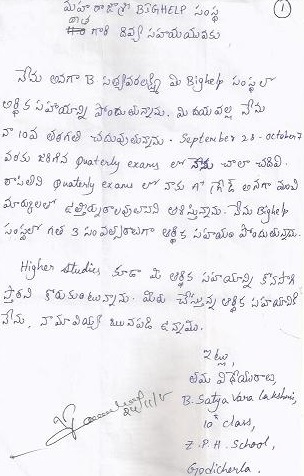 మహారాజశ్రీ BIGHELP సంస్థ ①
దాత
గారి దివ్య సహాయమునకు
నేను అనగా B సత్యవరలక్ష్మి మీ Bighelp సంస్థలో
ఆర్థిక సహాయాన్ని పొందుతున్నాను. మీ దయవల్ల నేను
నా 10వ తరగతి చదువుతున్నాను. September 28 - october 7
వరకు జరిగిన Quaterly exams లో నేను చాలా చదివి
రాసితిని Quaterly exams లో నాకు A1 గ్రేడ్ అనగా మంచి
మార్కులలో ఉత్తీర్ణురాలవుతానని ఆశిస్తున్నాను. నేను Bighelp
సంస్థలో గత 3 సంవత్సరాలుగా ఆర్థిక సహాయం పొందుతున్నాను.
Higher Studies కూడా మీ ఆర్థిక సహాయాన్ని కొనసాగి
స్తారని కోరుకుంటున్నాను. మీరు చేస్తున్న ఆర్థిక సహాయానికి
నేను, నా ఋణపడి ఉన్నాము.
ఇట్లు,
తమ విధేయురాలు,
B. Satya vara lakshmi,
10th class,
Z.P.H. School,
Godicherla.